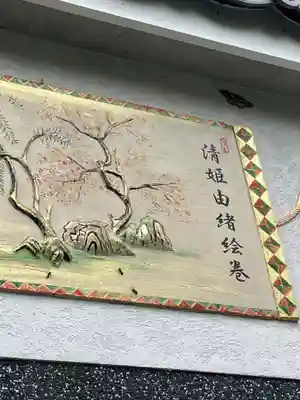 清姫由緒絵巻